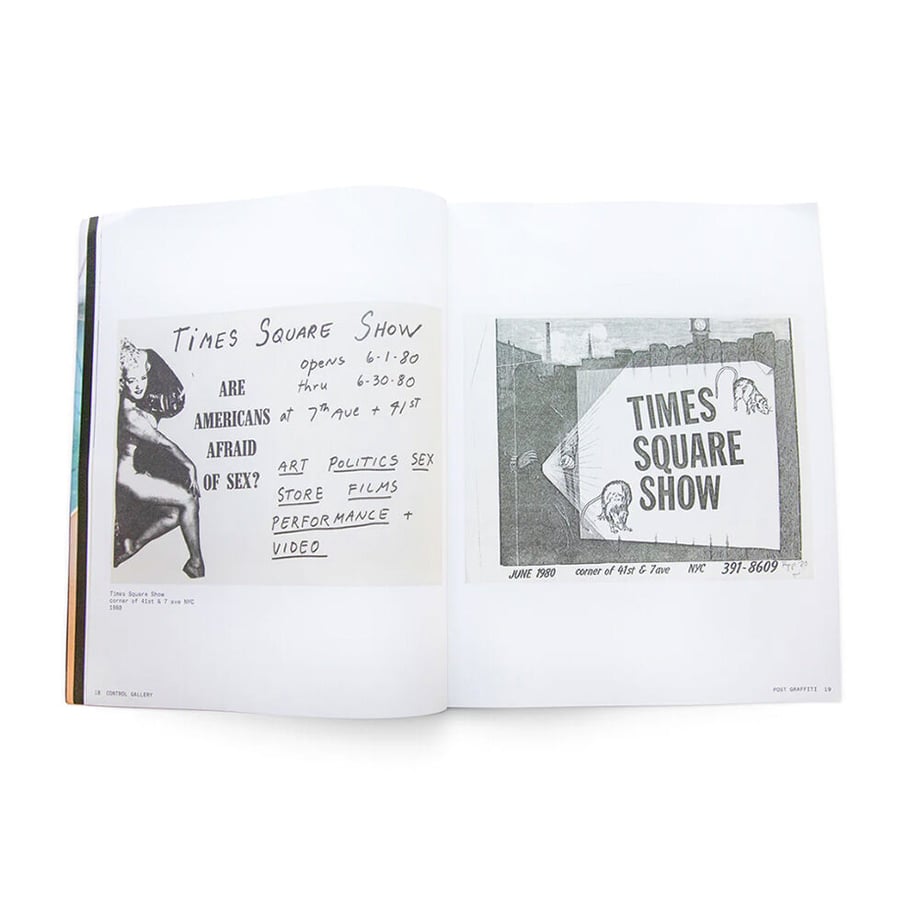 TIMES SQUARE SHOW
opens 6-1-80
thru 6-30-80
at 7th Ave + 41ST
ARE
AMERICANS
AFRAID
OF SEX?
ART POLITICS SEX
STORE FILMS
PERFORMANCE +
VIDEO
Times Square Show
corner of 41st & 7 ave NYC
1980
18 CONTROL GALLERY
TIMES
SQUARE
SHOW
JUNE 1980 corner of 41st & 7ave NYC 391-8609
POST GRAFFITI 19